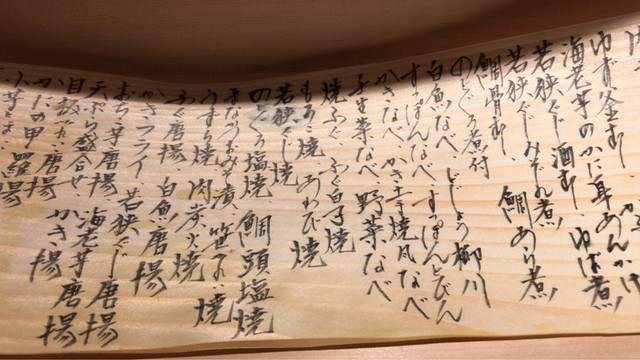 ゆず釜むし
海老芋のかに耳あんかけ
若狭ぐじ酒むし ゆば煮
若狭ぐじみぞれ煮
鯛骨むし 鯛あら煮
のどぐろ煮付
白魚なべ どじょう柳川
すっぽんなべ すっぽんどびん
かきなべ かき土手焼風なべ
せり芹なべ 野菜なべ
焼ふぐ ふぐ白子焼
もろこ焼 あわび焼
若狭ぐじ焼
のどぐろ塩焼 鯛頭塩焼
まながつおみそ漬 笹がれい焼
うずら焼 肉炭火焼
ふぐ唐揚 白魚唐揚
かきフライ
おち芋唐揚 若狭ぐじ唐揚
天ぷら盛合せ 海老芋唐揚
目板がれい唐揚 かき揚
かにの甲羅揚